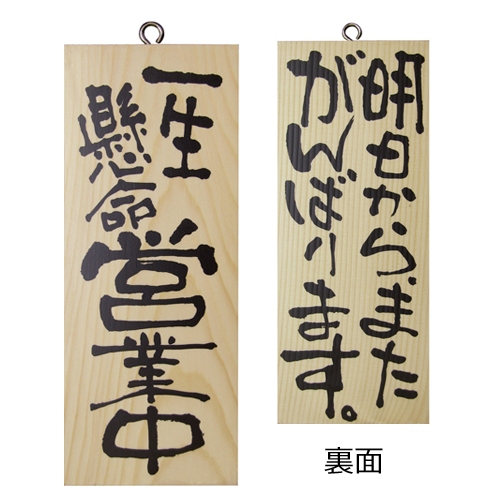 一生
懸命
営業中
明日からまた
がんばります。
裏面